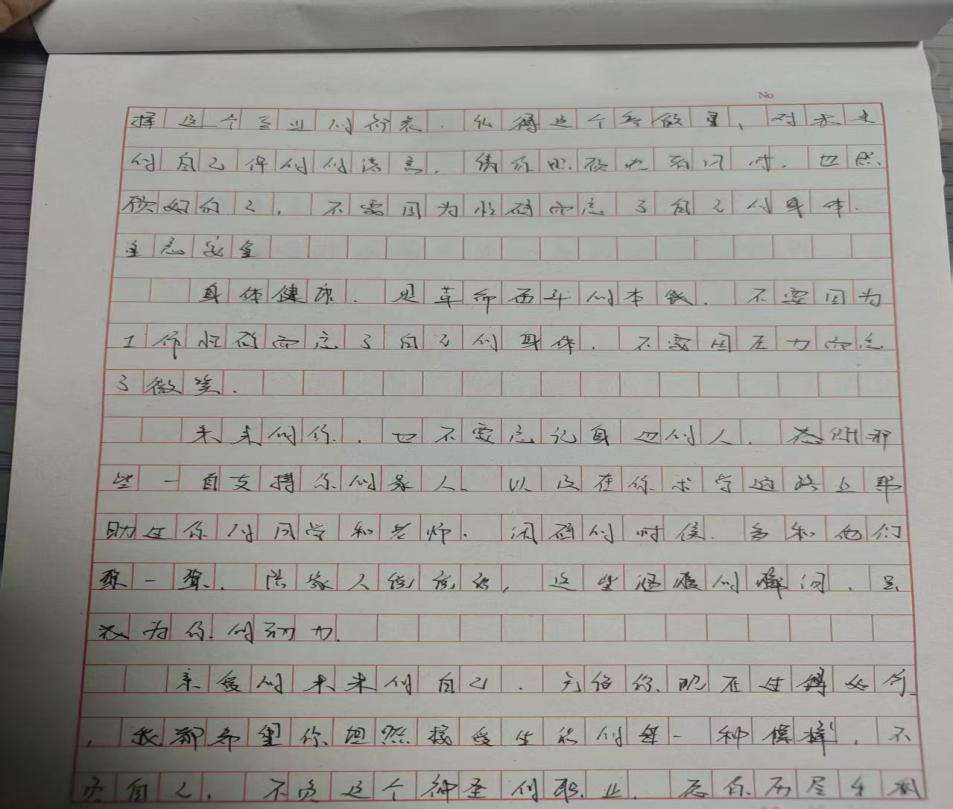 No
择这个专业的初衷.私得这个无故里,对未来
的自己许的的诺言.偶尔照顾也到门时.也照
顾好自己,不要因为忙碌而忘了自己的身体.
生忘安全
身体健康.是革命奋斗的本钱.不要因为
工作忙碌而忘了自己的身体.不要因压力而忘
了微笑.
未来的你.也不要忘记身边的人.感谢那
些一直支持你的家人、以及在你求学这路上帮
助过你的同学和老师.闲碌的时候.多和他们
聚一聚.陪家人说说话,这些温暖的瞬间.是
你的动力.
亲爱的未来的自己.无论你现在过得如何
,我都希望你坦然接受生活的每一种模样,不
负自己,不负这个神圣的职业.愿你历尽千帆